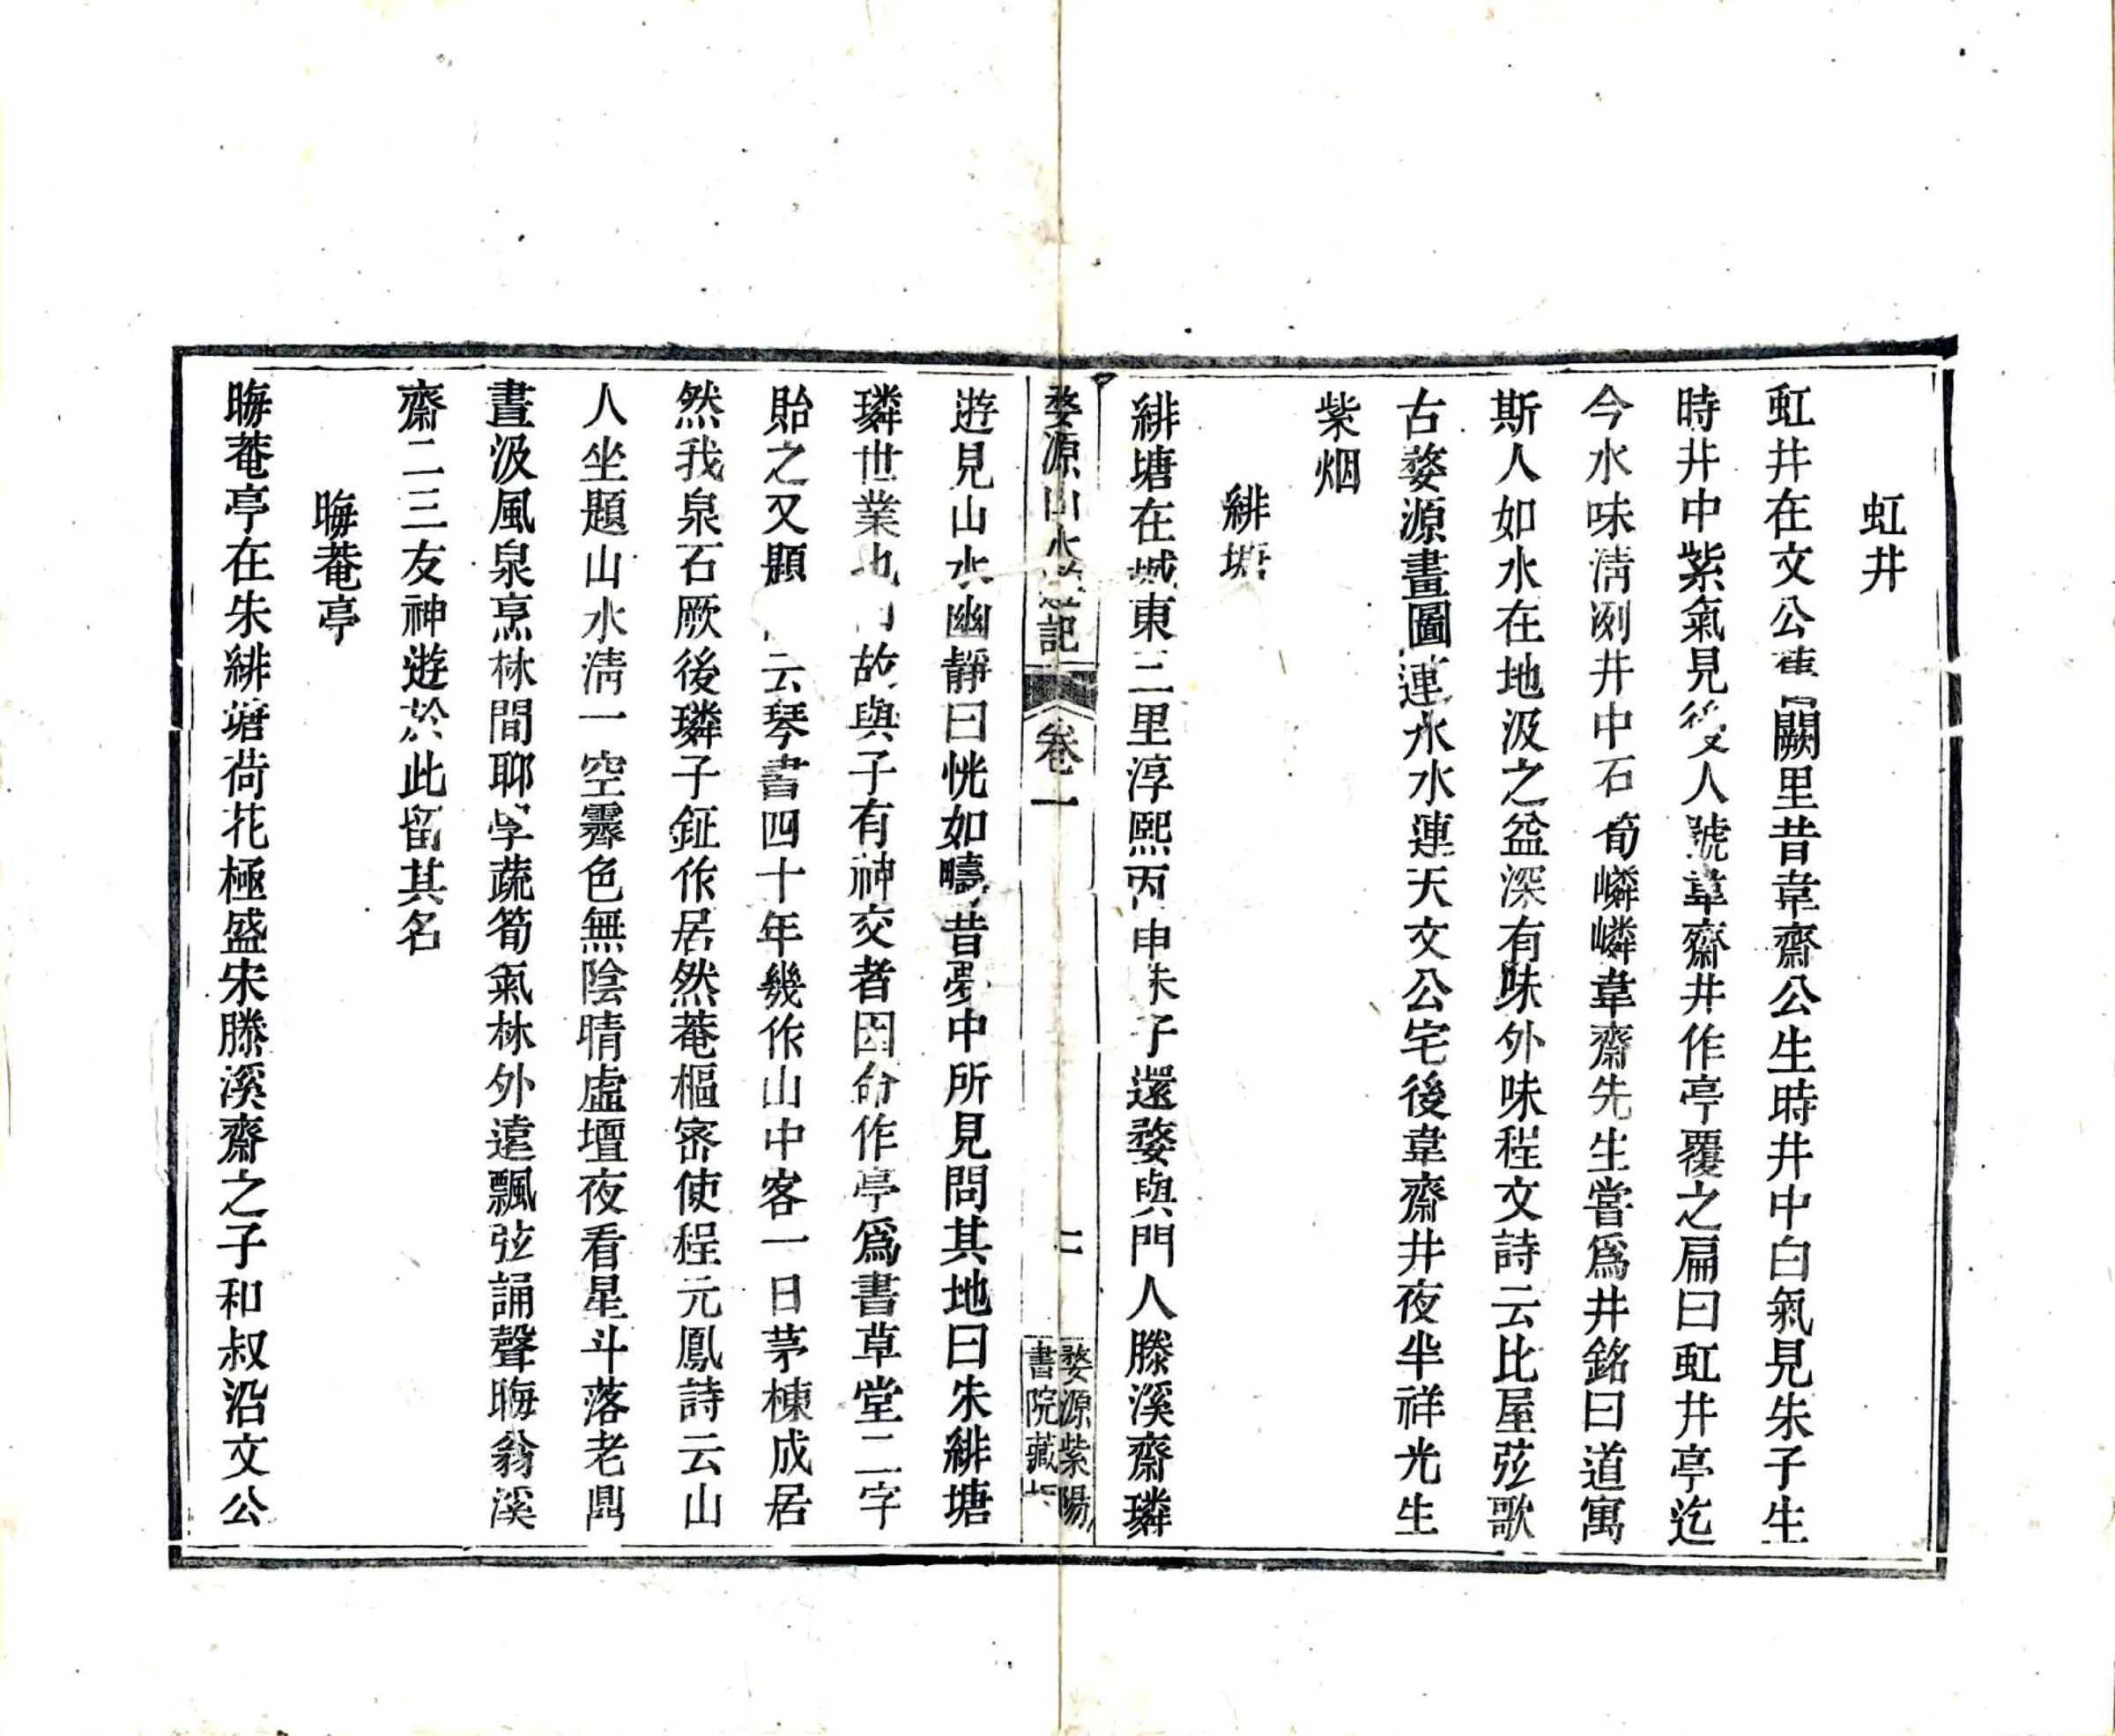 虹井
虹井在文公闕里昔韋齋公生時井中白氣見朱子生
時井中紫氣見後人號韋齋井作亭覆之扁曰虹井亭迄
今水味清冽井中石筍嶙嶙韋齋先生嘗爲井銘曰道寓
斯人如水在地汲之益深有味外味程文詩云比屋弦歌
古婺源畫圖連水水連天文公宅後韋齋井夜半祥光生
紫烟
緋塘
緋塘在城東三里淳熙丙申朱子還婺與門人滕溪齋璘
婺源山水遊記
卷一
二
婺源紫陽
書院藏
遊見山水幽靜曰恍如疇昔夢中所見問其地曰朱緋塘
璘世業也故與子有神交者因命作亭爲書草堂二字
貽之又題云琴書四十年幾作山中客一日茅棟成居
然我泉石厥後璘子鉦作居然菴樞密使程元鳳詩云山
人坐題山水清一空霽色無陰晴虛壇夜看星斗落老鼎
晝汲風泉烹林間聊學蔬筍氣林外遠飄弦誦聲晦翁溪
齋二三友神遊於此留其名
晦菴亭
晦菴亭在朱緋塘荷花極盛宋滕溪齋之子和叔沿文公